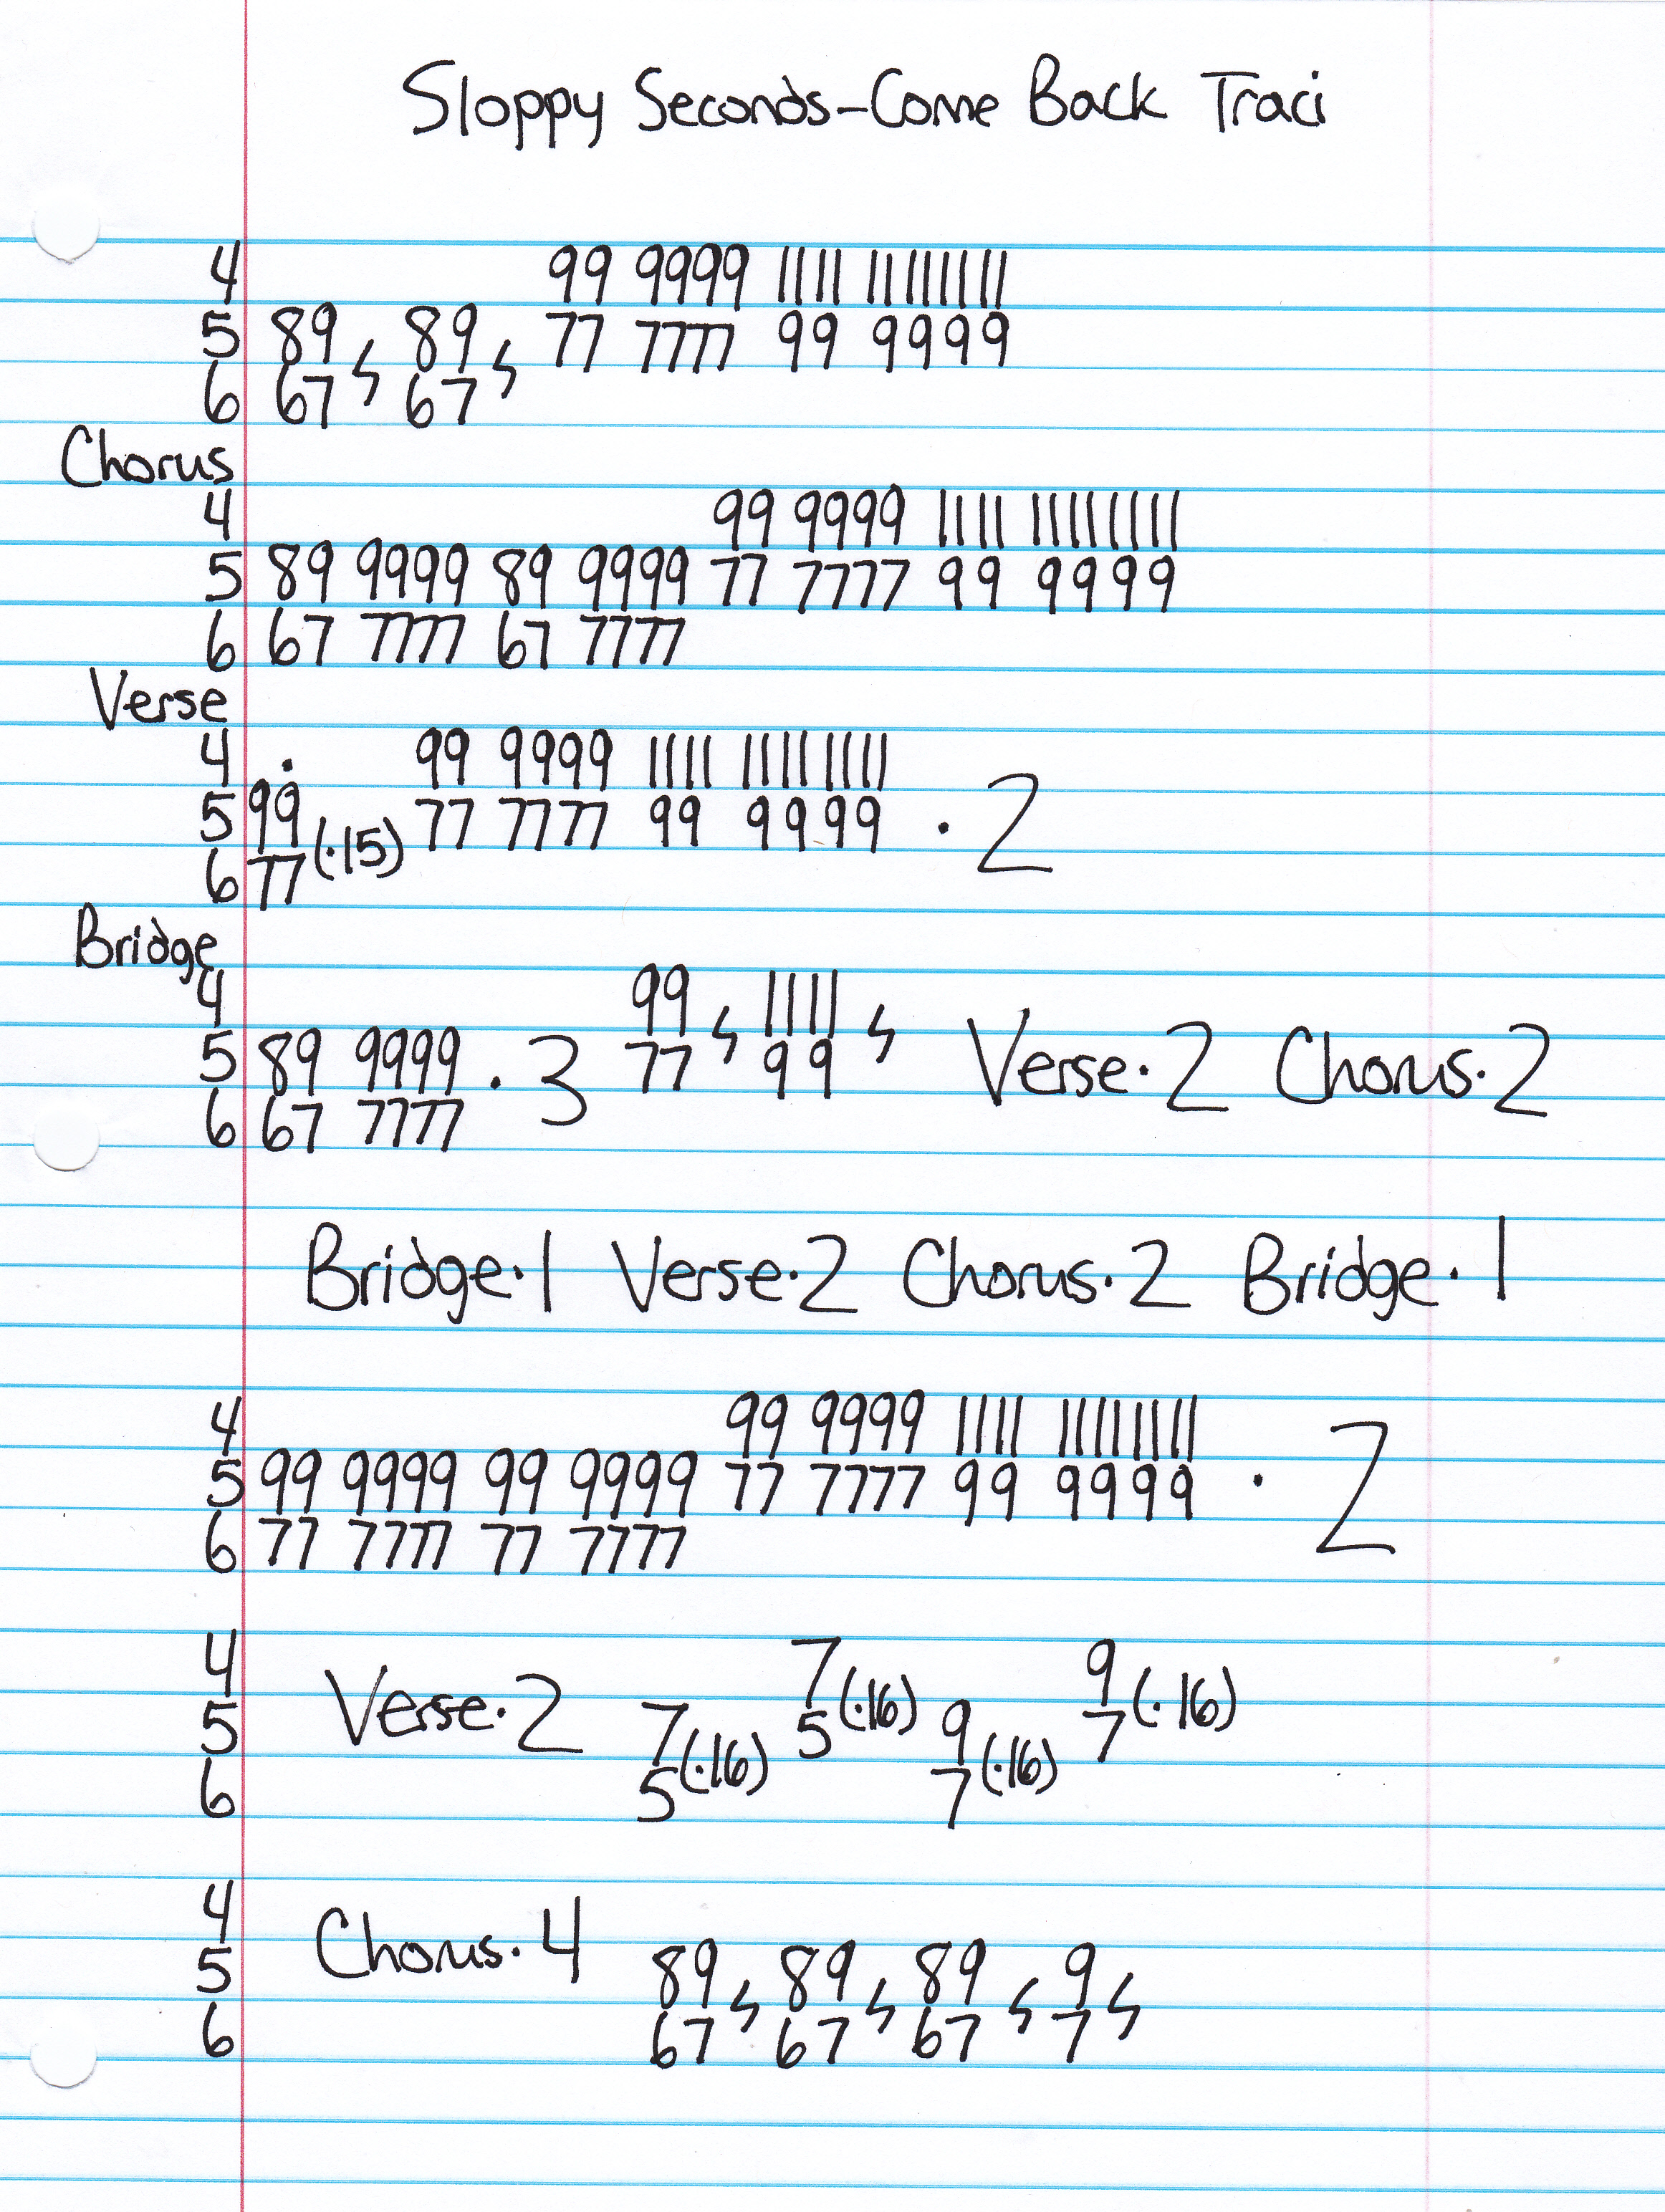 Sloppy Seconds-Come Back Traci
4 99 9999 1111 11111111
5 89 , 89 , 77 7777 99 9999
6 67 67
Chorus
4 99 9999 1111 11111111
5 89 9999 89 9999 77 7777 99 9999
6 67 7777 67 7777
Verse
4 . 99 9999 1111 11111111
5 99 (·15) 77 7777 99 9999 · 2
6 77
Bridge
4 99 , 1111 ,
5 89 9999 · 3 77 99 Verse·2 Chorus·2
6 67 7777
Bridge·1 Verse·2 Chorus·2 Bridge·1
4 99 9999 1111 11111111
5 99 9999 99 9999 77 7777 99 9999 · 2
6 77 7777 77 7777
4 7 (·16) 9 (·16)
5 Verse·2 7 (·16) 5 9 (·16) 7
6 5 7
4
5 Chorus·4 89 , 89 , 89 , 9 ,
6 67 67 67 7